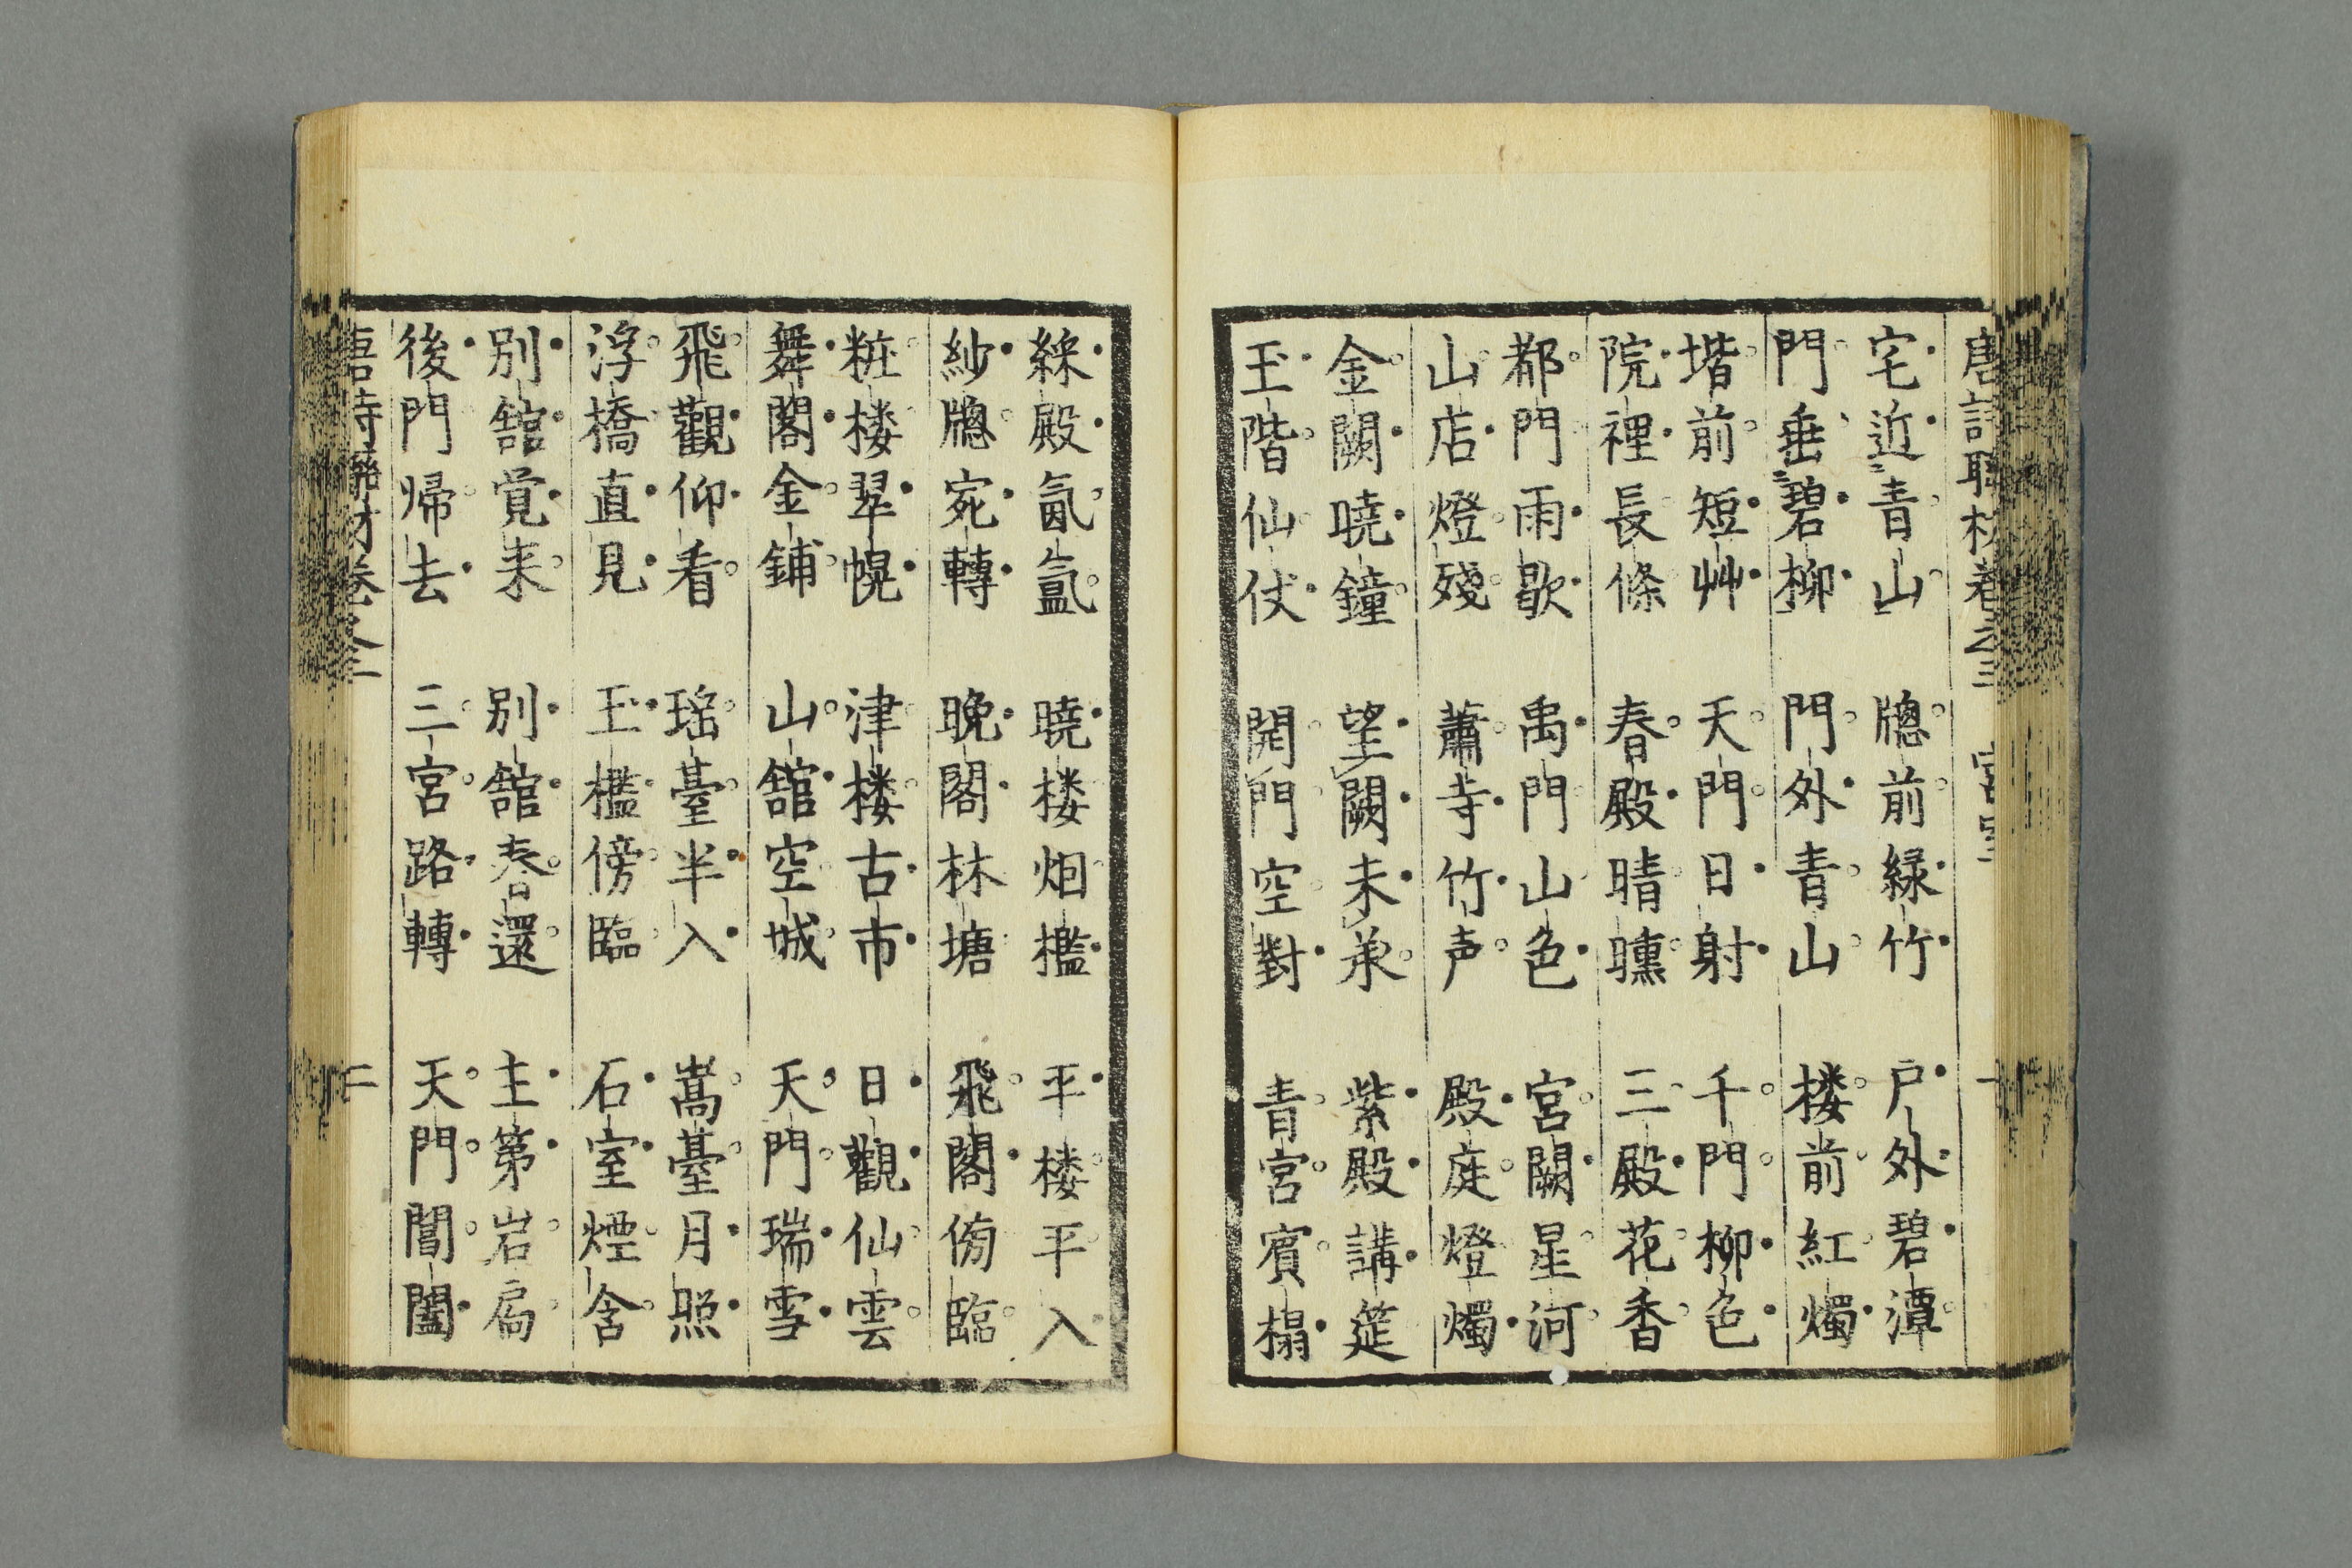 唐詩聯材卷之三 宮室
宅近青山 牕前緑竹 戸外碧潭
門垂碧柳 門外青山 楼前紅燭
堦前短艸 天門日射 千門柳色
院裡長條 春殿晴曛 三殿花香
都門雨歇 禹門山色 宮闕星河
山店燈殘 蕭寺竹声 殿庭燈燭
金闕曉鐘 望闕未承 紫殿講筵
玉階仙仗 開門空對 青宮賓榻
綵殿氤氳 曉楼烟檻 平楼平入
紗牕宛轉 晚閣林塘 飛閣傍臨
粧楼翠幌 津楼古市 日觀仙雲
舞閣金鋪 山舘空城 天門瑞雪
飛觀仰看 瑶臺半入 嵩臺月照
浮橋直見 玉檻傍臨 石室煙含
別舘覚来 別舘春還 主第岩扃
後門帰去 三宮路轉 天門閶闔
唐詩聯材卷之三 二